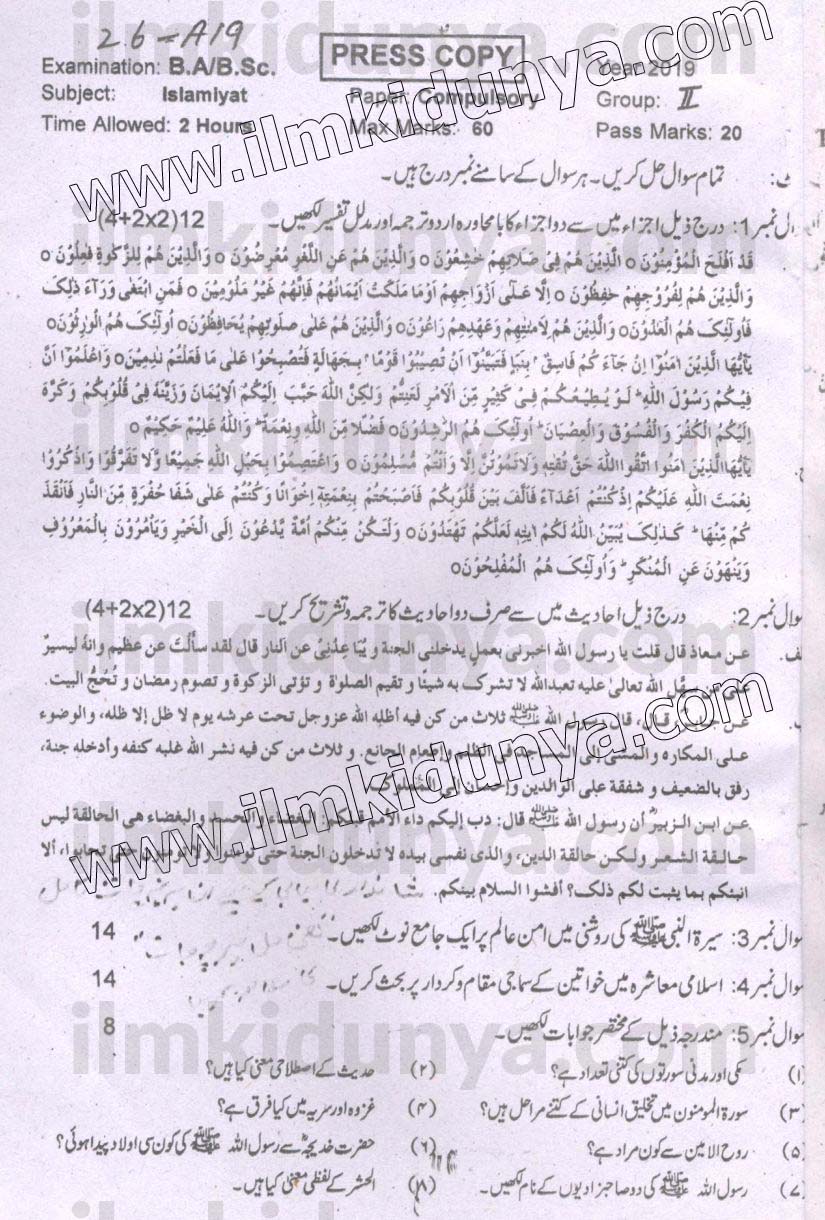 26-A19
PRESS COPY
Examination: B.A/B.Sc. Year 2019
Subject: Islamiyat Paper: Compulsory Group: II
Time Allowed: 2 Hours Max Marks: 60 Pass Marks: 20
تمام سوال حل کریں۔ ہر سوال کے سامنے نمبر درج ہیں۔
سوال نمبر 1: درج ذیل اجزاء میں سے دو اجزاء کا با محاورہ اردو ترجمہ اور مدلل تفسیر لکھیں۔ (4+2x2)12
قَدْ اَفْلَحَ الْمُؤْمِنُوْنَ o الَّذِيْنَ هُمْ فِیْ صَلَاتِهِمْ خٰشِعُوْنَ o وَالَّذِيْنَ هُمْ عَنِ اللَّغْوِ مُعْرِضُوْنَ o وَالَّذِيْنَ هُمْ لِلزَّكٰوةِ فٰعِلُوْنَ o
وَالَّذِيْنَ هُمْ لِفُرُوْجِهِمْ حٰفِظُوْنَ o اِلَّا عَلٰٓى اَزْوَاجِهِمْ اَوْمَا مَلَكَتْ اَيْمَانُهُمْ فَاِنَّهُمْ غَيْرُ مَلُوْمِيْنَ o فَمَنِ ابْتَغٰى وَرَآءَ ذٰلِكَ
فَاُولٰٓئِكَ هُمُ الْعٰدُوْنَ o وَالَّذِيْنَ هُمْ لِاَمٰنٰتِهِمْ وَعَهْدِهِمْ رَاعُوْنَ o وَالَّذِيْنَ هُمْ عَلٰى صَلَوٰتِهِمْ يُحَافِظُوْنَ o اُولٰٓئِكَ هُمُ الْوٰرِثُوْنَ o
يٰٓاَيُّهَا الَّذِيْنَ اٰمَنُوْا اِنْ جَآءَ كُمْ فَاسِقٌ بِنَبَاٍ فَتَبَيَّنُوْٓا اَنْ تُصِيْبُوْا قَوْمًا بِجَهَالَةٍ فَتُصْبِحُوْا عَلٰى مَا فَعَلْتُمْ نٰدِمِيْنَ o وَاعْلَمُوْٓا اَنَّ
فِيْكُمْ رَسُوْلَ اللّٰهِ لَوْ يُطِيْعُكُمْ فِیْ كَثِيْرٍ مِّنَ الْاَمْرِ لَعَنِتُّمْ وَلٰكِنَّ اللّٰهَ حَبَّبَ اِلَيْكُمُ الْاِيْمَانَ وَزَيَّنَهٗ فِیْ قُلُوْبِكُمْ وَكَرَّهَ
اِلَيْكُمُ الْكُفْرَ وَالْفُسُوْقَ وَالْعِصْيَانَ اُولٰٓئِكَ هُمُ الرّٰشِدُوْنَ o فَضْلًا مِّنَ اللّٰهِ وَنِعْمَةً وَاللّٰهُ عَلِيْمٌ حَكِيْمٌ o
يٰٓاَيُّهَا الَّذِيْنَ اٰمَنُوا اتَّقُوا اللّٰهَ حَقَّ تُقٰتِهٖ وَلَا تَمُوْتُنَّ اِلَّا وَاَنْتُمْ مُّسْلِمُوْنَ o وَاعْتَصِمُوْا بِحَبْلِ اللّٰهِ جَمِيْعًا وَّلَا تَفَرَّقُوْا وَاذْكُرُوْا
نِعْمَتَ اللّٰهِ عَلَيْكُمْ اِذْكُنْتُمْ اَعْدَآءً فَاَلَّفَ بَيْنَ قُلُوْبِكُمْ فَاَصْبَحْتُمْ بِنِعْمَتِهٖٓ اِخْوَانًا وَكُنْتُمْ عَلٰى شَفَا حُفْرَةٍ مِّنَ النَّارِ فَاَنْقَذَ
كُمْ مِّنْهَا كَذٰلِكَ يُبَيِّنُ اللّٰهُ لَكُمْ اٰيٰتِهٖ لَعَلَّكُمْ تَهْتَدُوْنَ o وَلْتَكُنْ مِّنْكُمْ اُمَّةٌ يَّدْعُوْنَ اِلَى الْخَيْرِ وَيَاْمُرُوْنَ بِالْمَعْرُوْفِ
وَيَنْهَوْنَ عَنِ الْمُنْكَرِ وَاُولٰٓئِكَ هُمُ الْمُفْلِحُوْنَ o
سوال نمبر 2: درج ذیل احادیث میں سے صرف دو احادیث کا ترجمہ و تشریح کریں۔ (4+2x2)12
عن معاذ قال قلت یا رسول الله اخبرنی بعمل یدخلنی الجنة و یُبا عِدُنِی عن النار قال لقد سألتَ عن عظیم وانهٔ لیسیرٌ
علی من یسَّرُ الله تعالیٰ علیه تعبدالله لا تشرک به شیئا و تقیم الصلوٰة و تؤتی الزکوة و تصوم رمضان و تُحُجُّ البیت.
عن جابر قال، قال رسول الله ﷺ ثلاث من کن فیه أظله الله عزوجل تحت عرشه یوم لا ظل إلا ظله، والوضوء
علی المکاره والمشی إلی المساجد فی الظلم وإطعام الجائع. و ثلاث من کن فیه نشر الله علیه کنفه وأدخله جنة،
رفق بالضعیف و شفقة علی الوالدین وإحسان إلی المملوک.
عن ابن الزبیرؓ أن رسول الله ﷺ قال: دب إلیکم داء الأمم قبلکم: البغضاء والحسد والبغضاء هی الحالقة لیس
حالقة الشعر ولکن حالقة الدین، والذی نفسی بیده لا تدخلون الجنة حتی تؤمنوا ولا تؤمنون حتی تحابوا، ألا
انبئکم بما یثبت لکم ذلک؟ أفشوا السلام بینکم.
سوال نمبر 3: سیرۃ النبی ﷺ کی روشنی میں امن عالم پر ایک جامع نوٹ لکھیں۔ 14
سوال نمبر 4: اسلامی معاشرہ میں خواتین کے سماجی مقام و کردار پر بحث کریں۔ 14
سوال نمبر 5: مندرجہ ذیل کے مختصر جوابات لکھیں۔ 8
(۱) مکی اور مدنی سورتوں کی کتنی تعداد ہے؟ (۲) حدیث کے اصطلاحی معنی کیا ہیں؟
(۳) سورۃ المومنون میں تخلیق انسانی کے کتنے مراحل ہیں؟ (۴) غزوہ اور سریہ میں کیا فرق ہے؟
(۵) روح الامین سے کون مراد ہے؟ (۶) حضرت خدیجہؓ سے رسول اللہ ﷺ کی کون سی اولاد پیدا ہوئی؟
(۷) رسول اللہ ﷺ کی دو صاحبزادیوں کے نام لکھیں۔ (۸) الحشر کے لفظی معنی کیا ہیں۔
www.ilmkidunya.com
www.ilmkidunya.com
ilmkidunya.com
ilmkidunya.com
ilmkidunya.com
ilmkidunya.com